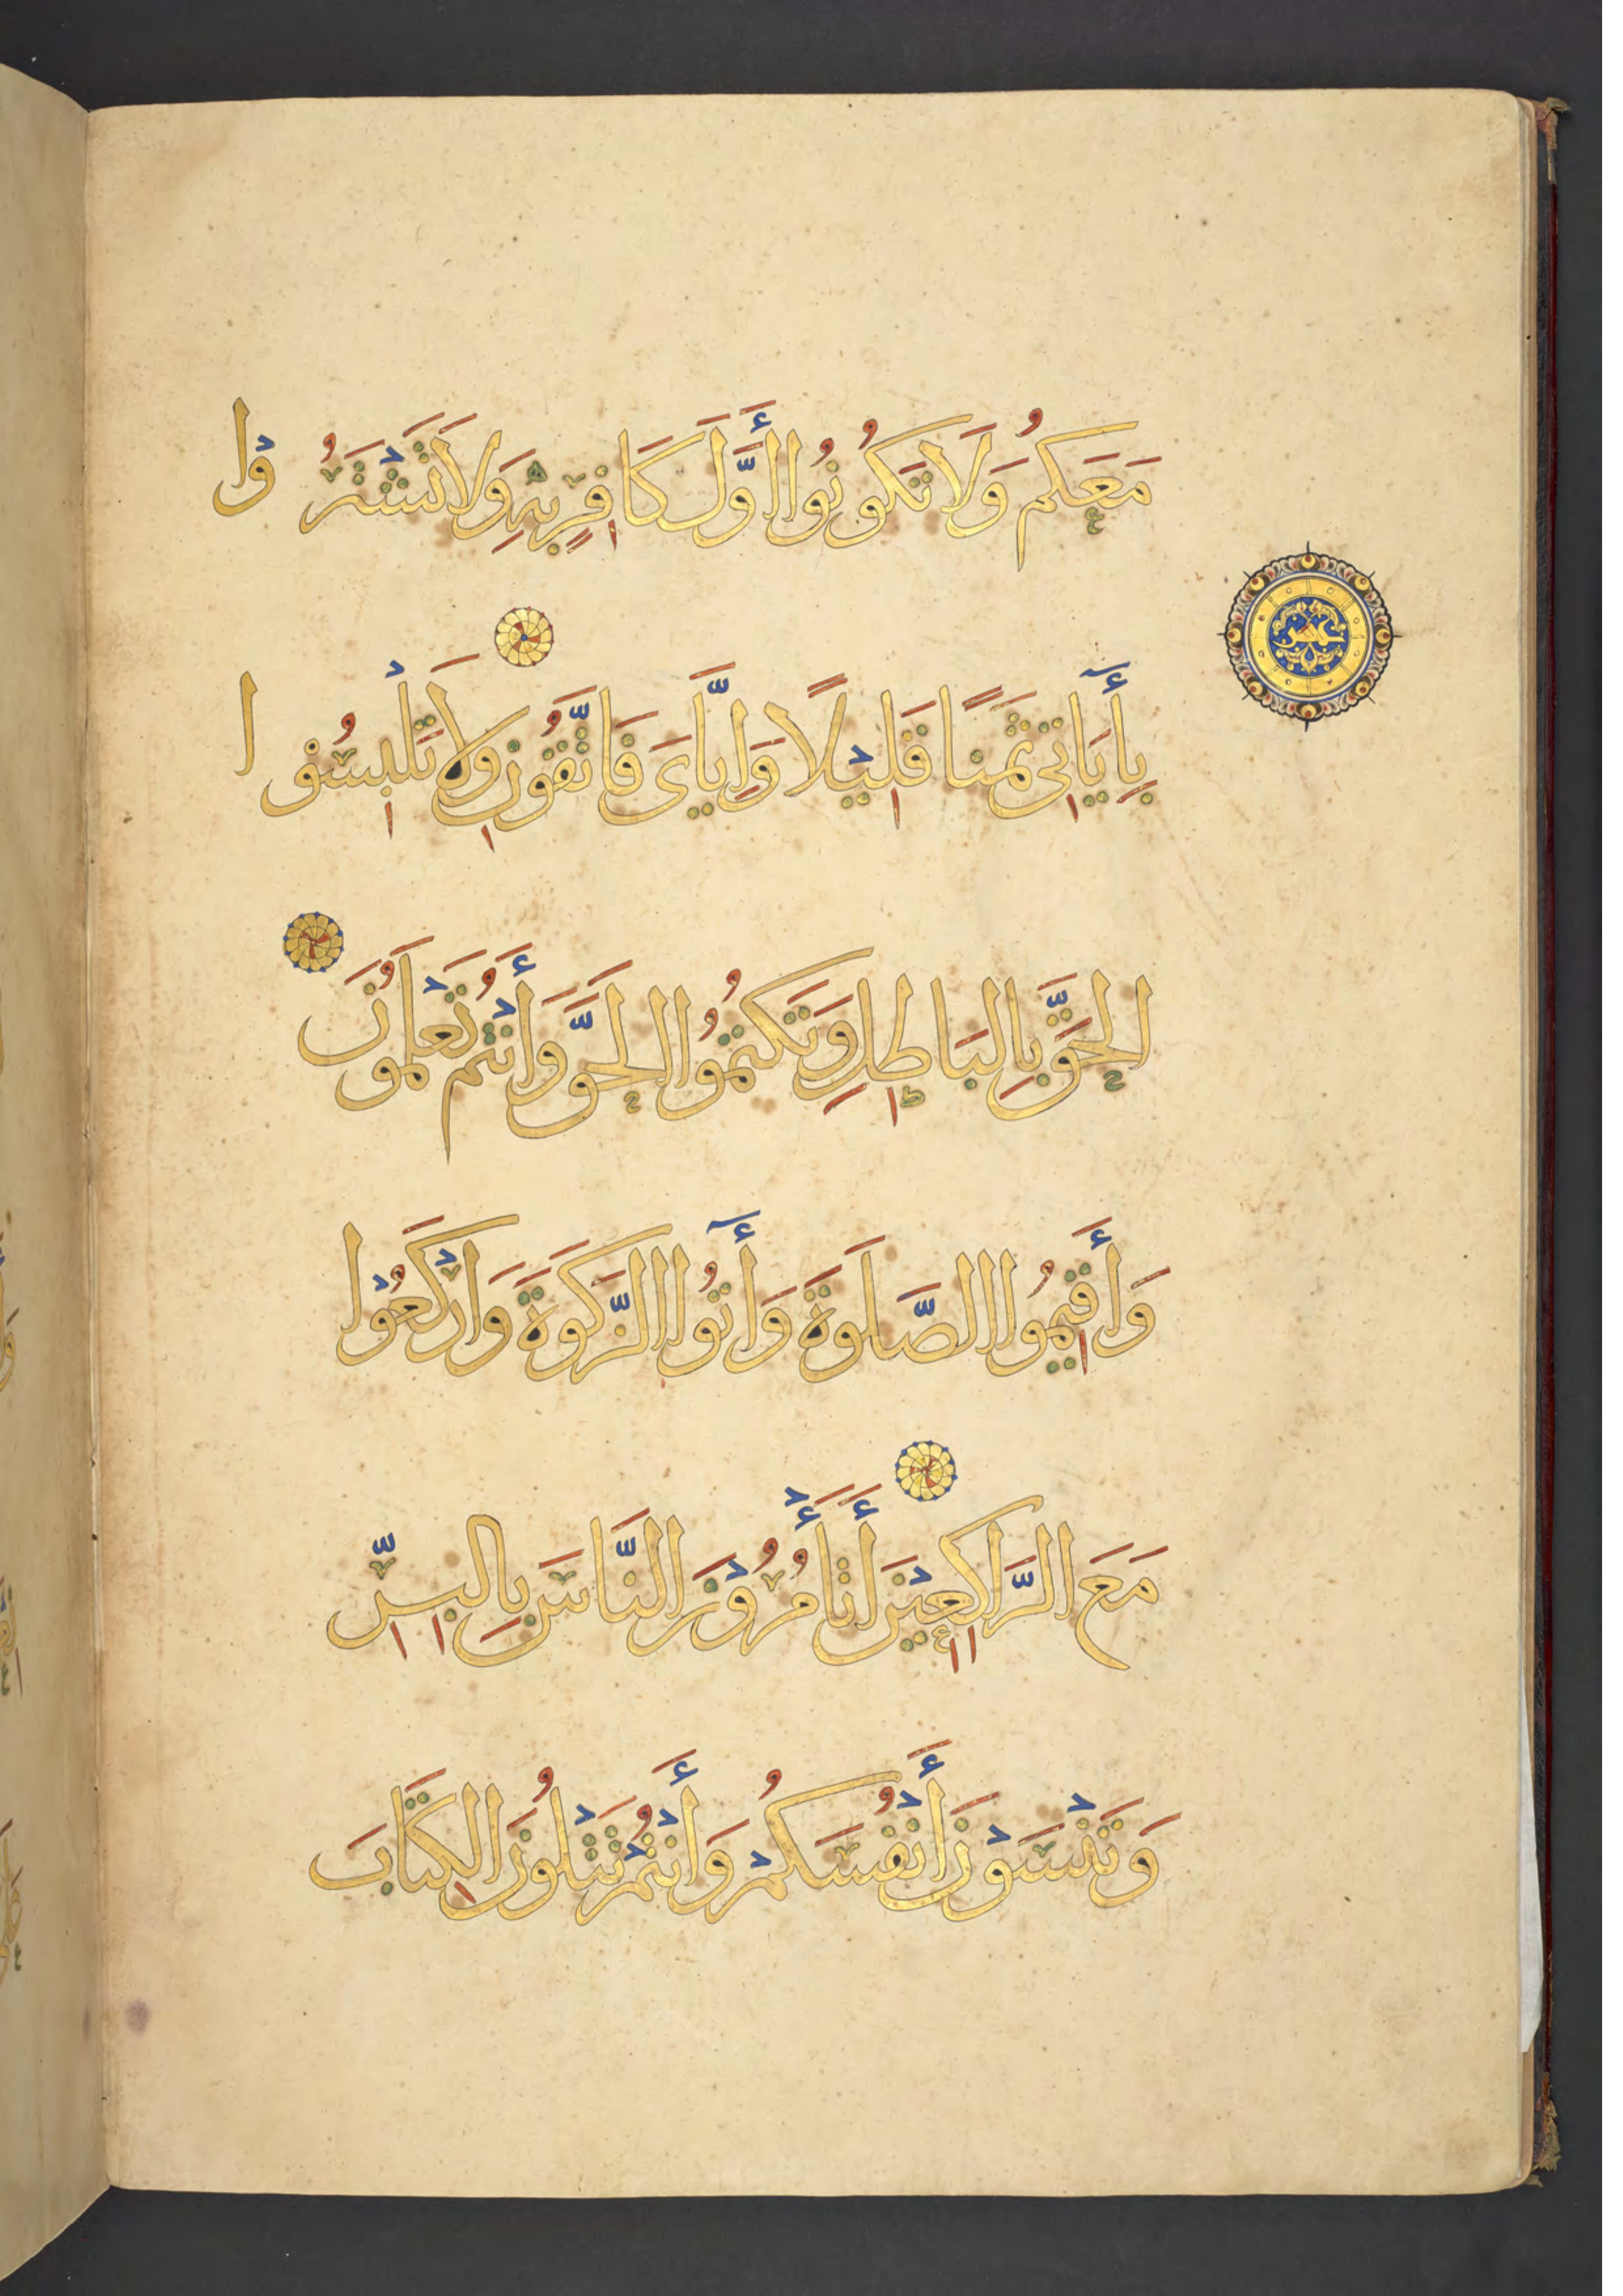 مَعَكُمْ وَلَا تَكُونُوا أَوَّلَ كَافِرٍ بِهِ وَلَا تَشْتَرُوْا
بِأَيَاتِى ثَمَنًا قَلِيْلًا وَإِيَّاىَ فَاتَّقُونِ وَلَا تَلْبِسُوْا
الحَقَّ بِالبَاطِلِ وَتَكتُمُوا الحَقَّ وَأَنْتُمْ تَعْلَمُونَ
وَأَقِيمُوا الصَّلَوةَ وَأَتُوا الزَّكَوةَ وَارْكَعُوْا
مَعَ الرَّاكِعِيْنَ أَتَأْمُرُوْنَ النَّاسَ بِالبِرِّ
وَتَنْسَوْنَ أَنْفُسَكُمْ وَأَنْتُمْ تَتْلُونَ الكِتَابَ
عشر